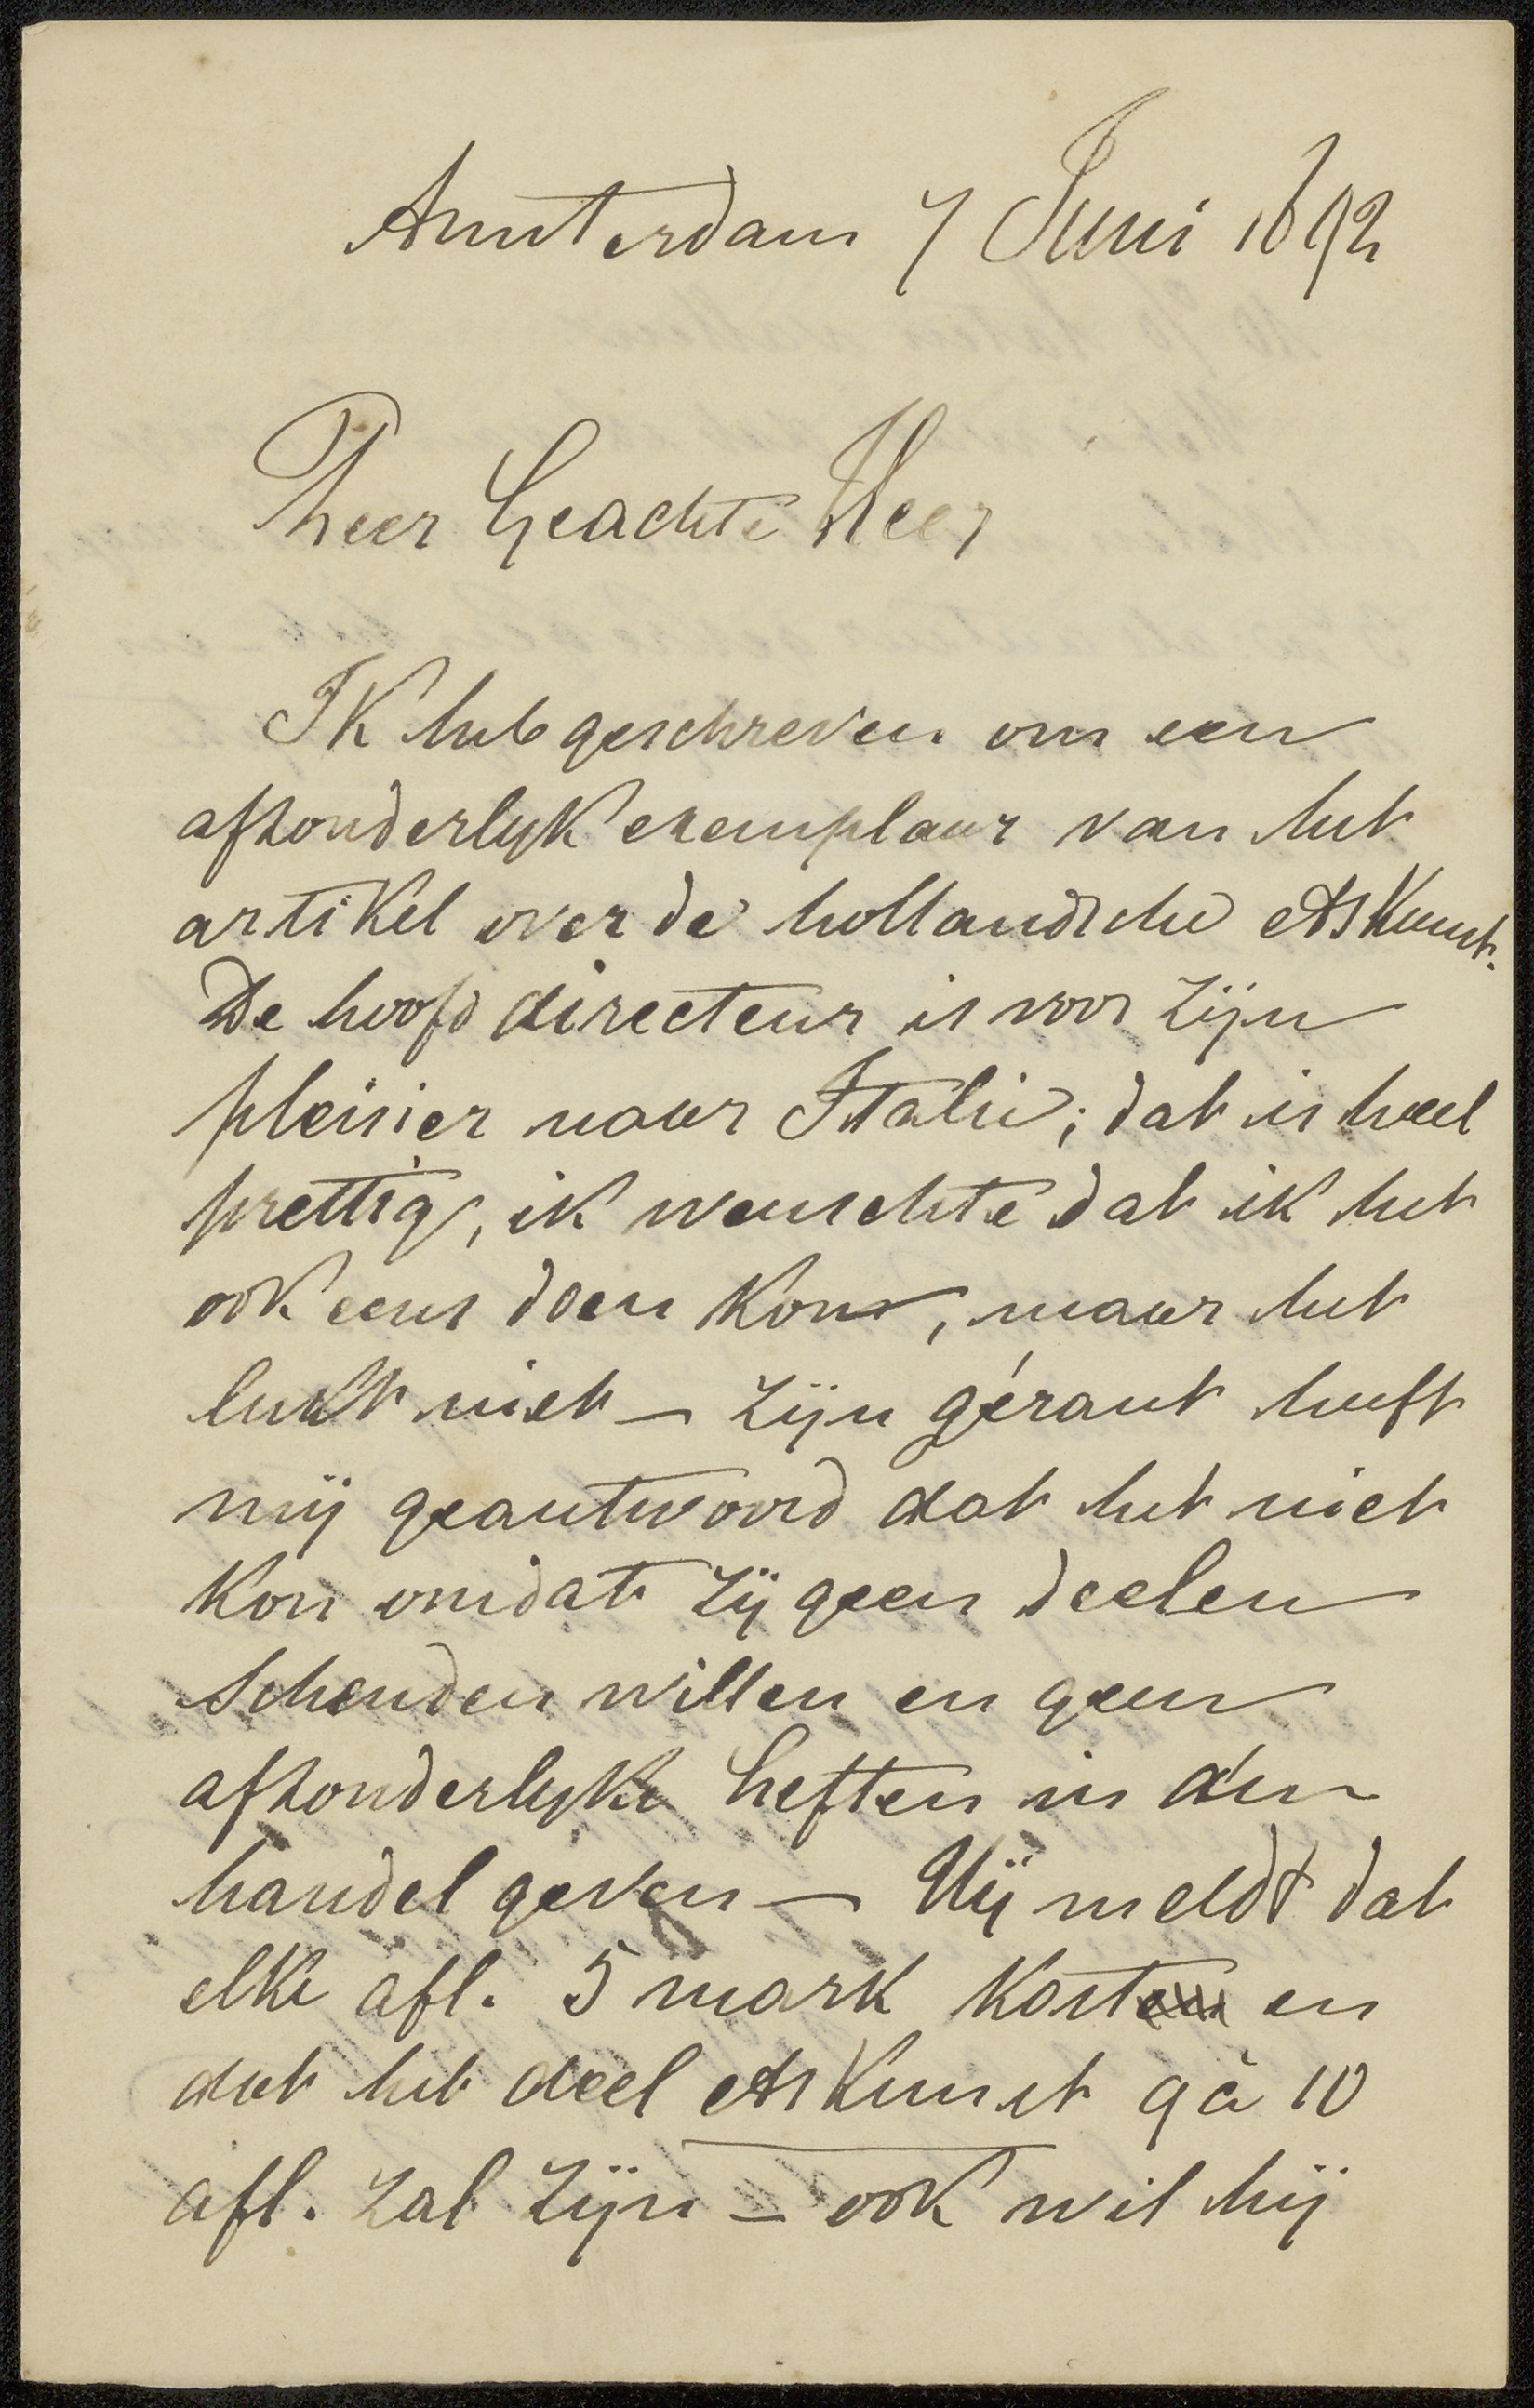 Amsterdam 7 Juni 1892
Zeer Geachte Heer
Ik heb geschreven om een
afzonderlyk exemplaar van het
artikel over de hollandsche etskunst.
De hoofd directeur is voor zijn
pleisier naar Italie; dat is heel
prettig, ik wenschte dat ik het
ook eens doen kon, maar het
lukt niet — zijn gérant heeft
mij geantwoord dat het niet
kon omdat zij geen deelen
schenden willen en geen
afzonderlyke heften in den
handel geven — Hij meldt dat
elke afl. 5 mark kost en
dat het deel etskunst 9 à 10
afl. zal zijn — ook wil hij